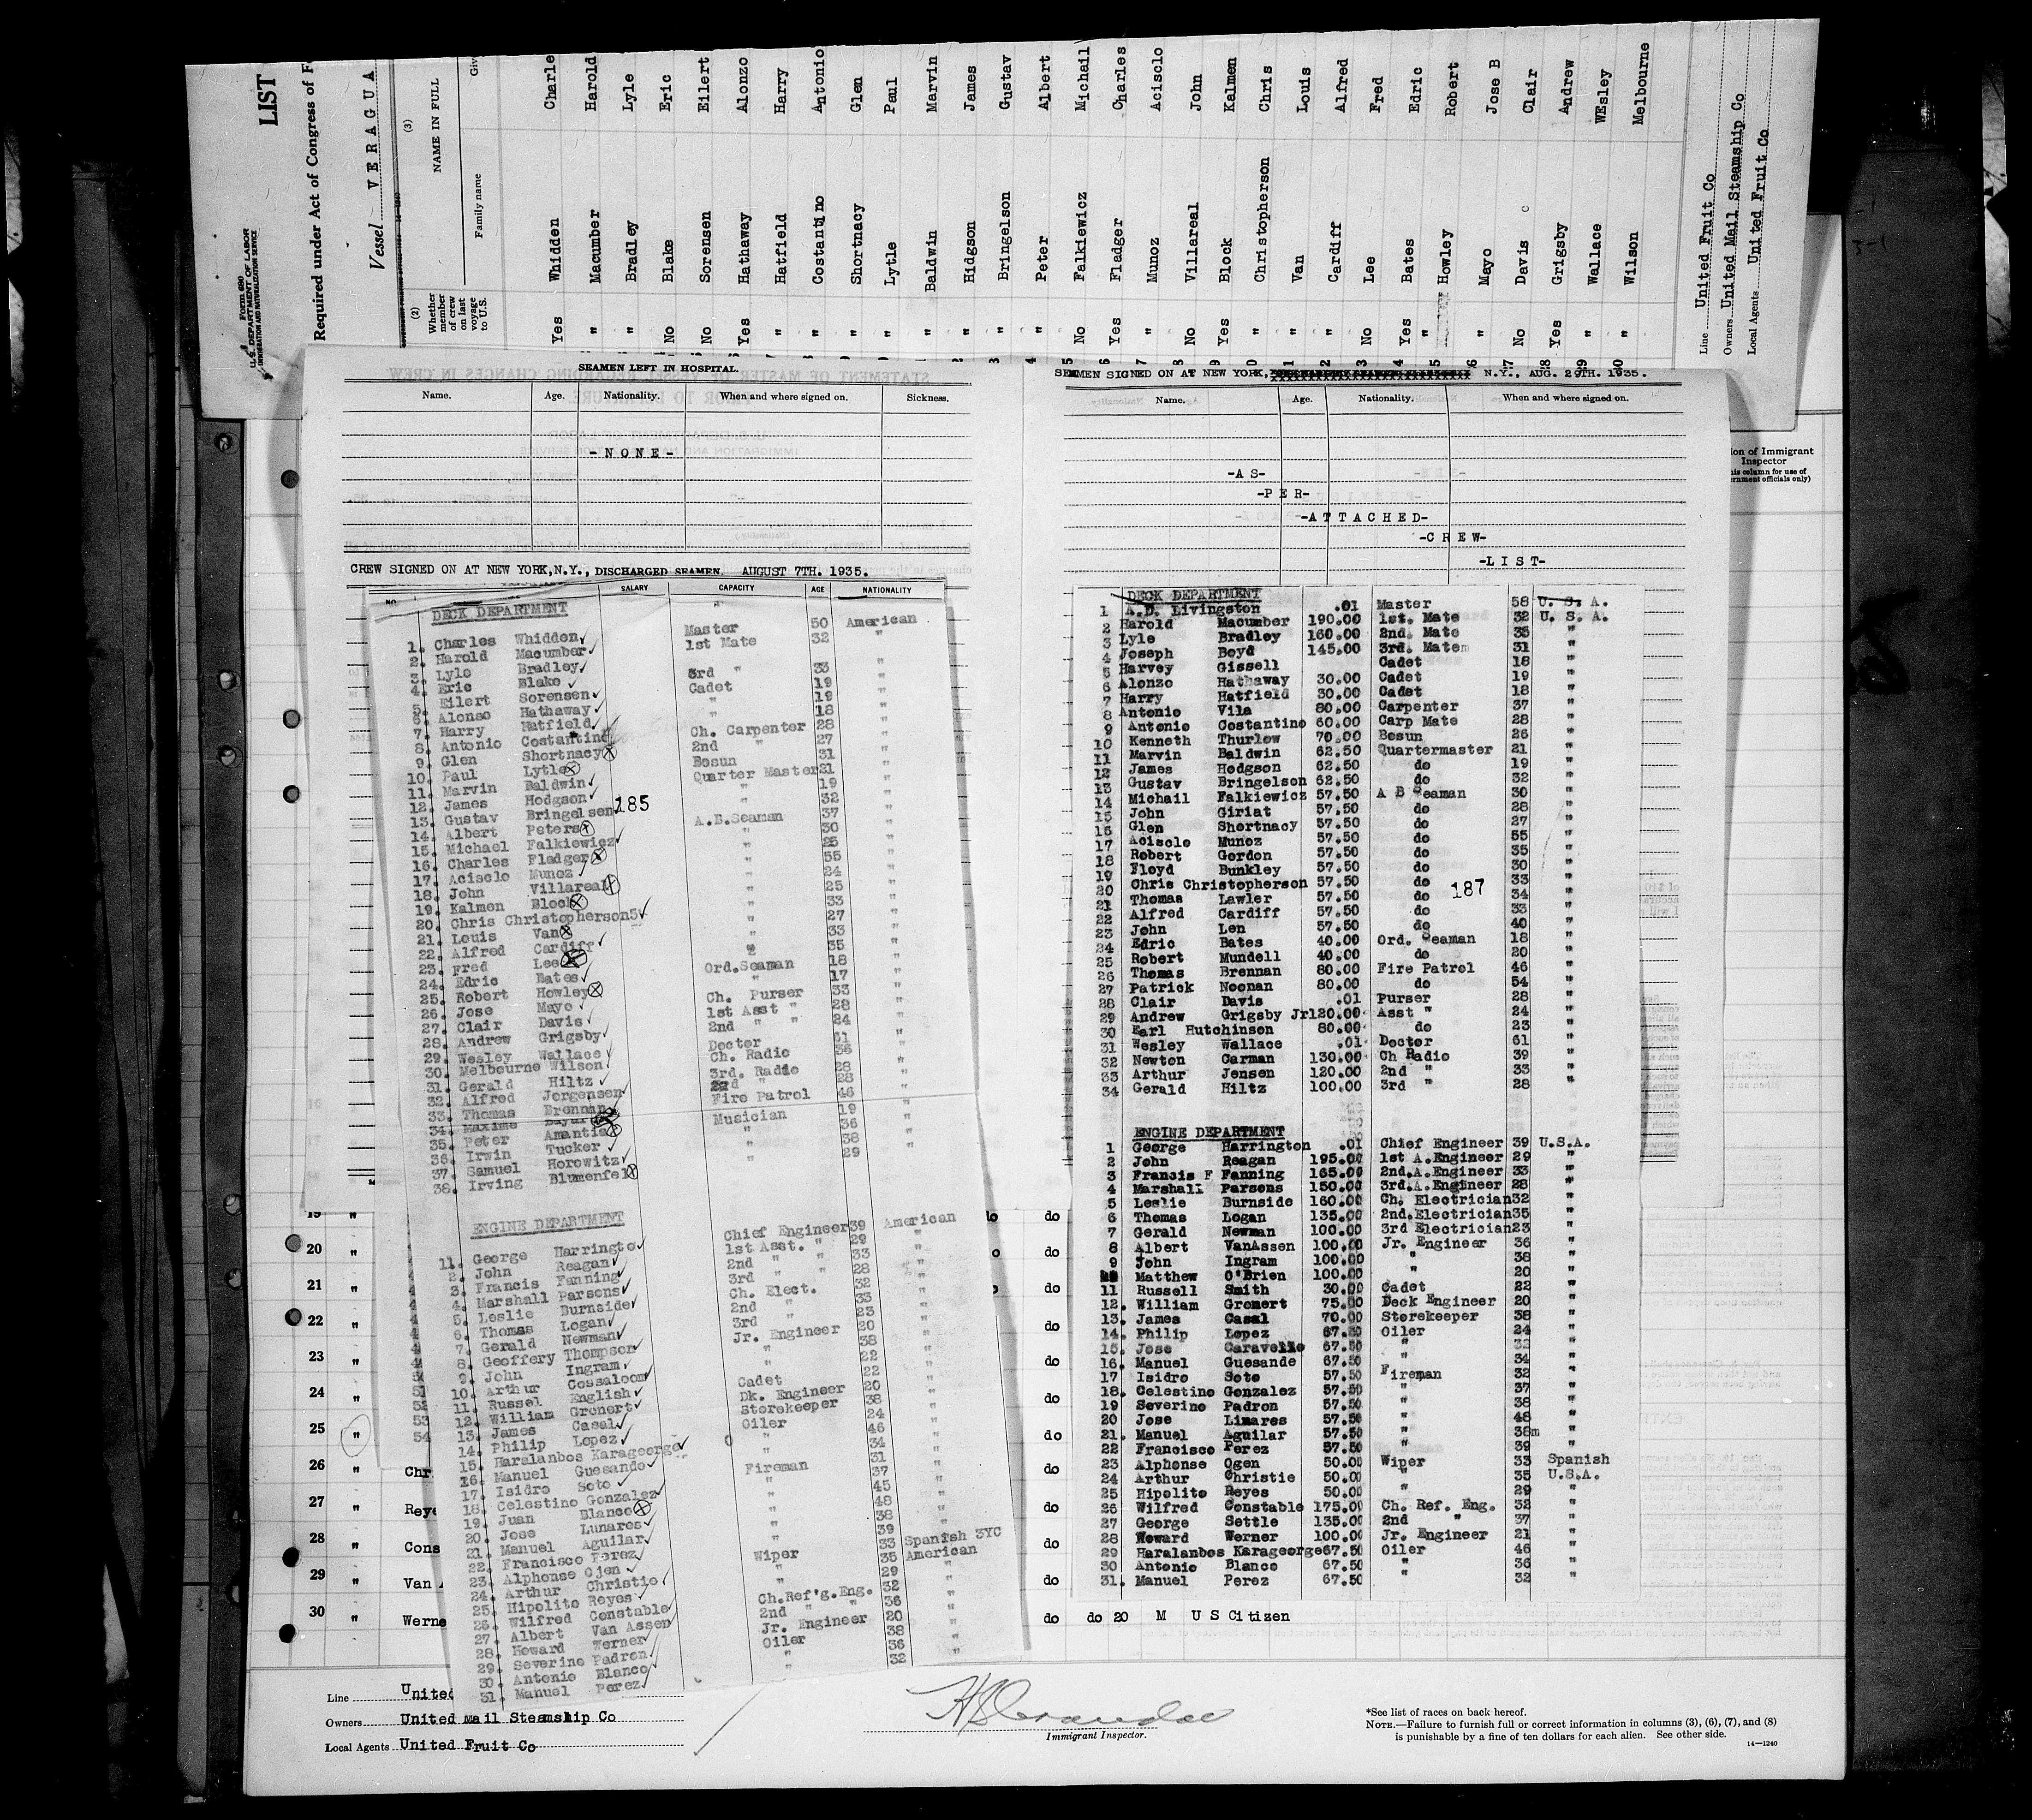 LIST
Form 680
U. S. DEPARTMENT OF LABOR
IMMIGRATION AND NATURALIZATION SERVICE
Required under Act of Congress of F
Vessel VERAGUA
(2)
Whether member of crew on last voyage to U.S.
(3)
NAME IN FULL
Family name
Giv
Yes Whidden Charle
" Macumber Harold
" Bradley Lyle
No Blake Eric
No Sorensen Eilert
Yes Hathaway Alonzo
" Hatfield Harry
" Costantino Antonio
" Shortnacy Glen
" Lytle Paul
" Baldwin Marvin
" Hidgson James
" Bringelson Gustav
" Peter Albert
No Falkiewicz Michail
Yes Fladger Charles
" Munoz Acisclo
No Villareal John
Yes Block Kalmen
" Christopherson Chris
" Van Louis
" Cardiff Alfred
No Lee Fred
Yes Bates Edric
" Howley Robert
" Mayo Jose B
No Davis Clair
Yes Grigsby Andrew
" Wallace WEsley
" Wilson Melbourne
Line United Fruit Co
Owners United Mail Steamship Co
Local Agents United Fruit Co
SEAMEN LEFT IN HOSPITAL.
Name. Age. Nationality. When and where signed on. Sickness.
-NONE-
CREW SIGNED ON AT NEW YORK,N.Y., DISCHARGED SEAMEN. AUGUST 7TH. 1935.
SALARY CAPACITY AGE NATIONALITY
DECK DEPARTMENT
1. Charles Whidden Master 50 American
2. Harold Macumber 1st Mate 32 "
3. Lyle Bradley
4. Eric Blake 3rd " 33 "
5. Eilert Sorensen Cadet 19 "
6. Alonso Hathaway " 19 "
7. Harry Hatfield " 18 "
8. Antonio Costantino Ch. Carpenter 28 "
9. Glen Shortnacy 2nd " 27 "
10. Paul Lytle Bosun 31 "
11. Marvin Baldwin Quarter Master 21 "
12. James Hodgson " 19 "
13. Gustav Bringelsen 185 " 32 "
14. Albert Peters A.B.Seaman 37 "
15. Michael Falkiewicz " 30 "
16. Charles Fladger " 25 "
17. Acisclo Munoz " 55 "
18. John Villareal " 24 "
19. Kalmen Block " 25 "
20. Chris Christopherson " 33 "
21. Louis Van " 27 "
22. Alfred Cardiff " 33 "
23. Fred Lee " 35 "
24. Edric Bates Ord.Seaman 18 "
25. Robert Howley " 17 "
26. Jose Mayo Ch. Purser 33 "
27. Clair Davis 1st Asst " 28 "
28. Andrew Grigsby 2nd " " 24 "
29. Wesley Wallace Doctor 61 "
30. Melbourne Wilson Ch. Radio 36 "
31. Gerald Hiltz 3rd. Radio 28 "
32. Alfred Jorgensen 2nd " 28 "
33. Thomas Brennan Fire Patrol 46 "
34. Maxime Musician 19 "
35. Peter Amantia " 36 "
36. Irwin Tucker " 38 "
37. Samuel Horowitz " 29
38. Irving Blumenfel
ENGINE DEPARTMENT
1. George Harringto Chief Engineer 39 American
2. John Reagan 1st Asst. " 29 "
3. Francis Fanning 2nd " " 33 "
4. Marshall Parsons 3rd " " 28 "
5. Leslie Burnside Ch. Elect. 32 "
6. Thomas Logan 2nd " 33 "
7. Gerald Newman 3rd " 23 "
8. Geoffery Thompson Jr. Engineer 20 "
9. John Ingram " 38 "
10. Arthur Cossaloom " 22 "
11. Russel English Cadet 22 "
12. William Gronert Dk. Engineer 20 "
13. James Casal Storekeeper 38 "
14. Philip Lopez Oiler 24 "
15. Haralanbos Karageorge " 46 "
16. Manuel Guesando " 34 "
17. Isidro Soto Fireman 31 "
18. Celestino Gonzalez " 37 "
19. Juan Blanco " 45 "
20. Jose Lunares " 48 "
21. Manuel Aguilar " 38 "
22. Francisco Perez " 39 "
23. Alphonse Ojen Wiper 33 Spanish 3YC
24. Arthur Christie " 35 American
25. Hipolito Reyes " 29 "
26. Wilfred Constable Ch.Ref'g.Eng. 32 "
27. Albert Van Assen 2nd " " 36 "
28. Howard Werner Jr. Engineer 20 "
29. Severino Padron Oiler 38 "
30. Antonio Blanco " 36 "
31. Manuel Perez " 32 "
SEAMEN SIGNED ON AT NEW YORK, N.Y., AUG. 29TH. 1935.
Name. Age. Nationality. When and where signed on.
-AS-
-PER-
-ATTACHED-
-CREW-
-LIST-
DECK DEPARTMENT
1 A.D. Livingston .01 Master 58 U. S. A.
2 Harold Macumber 190.00 1st. Mate 32 U. S. A.
3 Lyle Bradley 160.00 2nd. Mate 35 "
4 Joseph Boyd 145.00 3rd. Matem 31 "
5 Harvey Gissell Cadet 18 "
6 Alonzo Hathaway 30.00 Cadet 19 "
7 Harry Hatfield 30.00 Cadet 18 "
8 Antonio Vila 80.00 Carpenter 37 "
9 Antonio Costantino 60.00 Carp Mate 28 "
10 Kenneth Thurlow 70.00 Bosun 26 "
11 Marvin Baldwin 62.50 Quartermaster 21 "
12 James Hodgson 62.50 do 19 "
13 Gustav Bringelson 62.50 do 32 "
14 Michail Falkiewicz 57.50 A B Seaman 30 "
15 John Giriat 57.50 do 28 "
16 Glen Shortnacy 57.50 do 27 "
17 Acisclo Munoz 57.50 do 55 "
18 Robert Gordon 57.50 do 35 "
19 Floyd Bunkley 57.50 do 30 "
20 Chris Christopherson 57.50 do 187 33 "
21 Thomas Lawler 57.50 do 34 "
22 Alfred Cardiff 57.50 do 33 "
23 John Len 57.50 do 40 "
24 Edric Bates 40.00 Ord. Seaman 18 "
25 Robert Mundell 40.00 do 20 "
26 Thomas Brennan 80.00 Fire Patrol 46 "
27 Patrick Noonan 80.00 do 54 "
28 Clair Davis .01 Purser 28 "
29 Andrew Grigsby Jr 120.00 Asst " 24 "
30 Earl Hutchinson 80.00 do 23 "
31 Wesley Wallace .01 Doctor 61 "
32 Newton Carman 130.00 Ch Radio 39 "
33 Arthur Jensen 120.00 2nd " 33 "
34 Gerald Hiltz 100.00 3rd " 28 "
ENGINE DEPARTMENT
1 George Harrington .01 Chief Engineer 39 U.S.A.
2 John Reagan 195.00 1st A.Engineer 29 "
3 Francis F Fanning 165.00 2nd.A.Engineer 33 "
4 Marshall Parsons 150.00 3rd.A.Engineer 28 "
5 Leslie Burnside 160.00 Ch. Electrician 32 "
6 Thomas Logan 135.00 2nd.Electrician 35 "
7 Gerald Newman 100.00 3rd Electrician 23 "
8 Albert VanAssen 100.00 Jr. Engineer 36 "
9 John Ingram 100.00 " 38 "
Matthew O'Brien 100.00 " 20 "
11 Russell Smith 30.00 Cadet 22 "
12. William Gronert 75.00 Deck Engineer 20 "
13. James Casal 70.00 Storekeeper 38 "
14. Philip Lopez 67.50 Oiler 24 "
15. Jose Caravello 67.50 " 32 "
16. Manuel Guesande 67.50 " 34 "
17 Isidro Soto 57.50 Fireman 32 "
18. Celestino Gonzalez 57.50 " 37 "
19 Severino Padron 57.50 " 38 "
20 Jose Linares 57.50 " 48 "
21. Manuel Aguilar 57.50 " 38m "
22 Francisco Perez 57.50 " 39 "
23 Alphonse Ogen 50.00 Wiper 33 Spanish
24 Arthur Christie 50.00 " 35 U.S.A.
25 Hipolito Reyes 50.00 " 29 "
26 Wilfred Constable 175.00 Ch. Ref. Eng. 32 "
27 George Settle 135.00 2nd " 37 "
28 Howard Werner 100.00 Jr. Engineer 21 "
29 Haralanbos Karageorge 67.50 Oiler 46 "
30 Antonio Blanco 67.50 " 36 "
31. Manuel Perez 67.50 " 32 "
ion of Immigrant
Inspector
is column for use of
ernment officials only)
19 " do do
20 " o do
21 " do
22 " do
23 " do
24 " do
25 " do
26 " Chr do
27 " Reye do
28 " Cons do
29 " Van do
30 " Werne do do 20 M U S Citizen
Line United
Owners United Mail Steamship Co
Local Agents United Fruit Co
Immigrant Inspector.
*See list of races on back hereof.
NOTE.—Failure to furnish full or correct information in columns (3), (6), (7), and (8)
is punishable by a fine of ten dollars for each alien. See other side.
14—1240